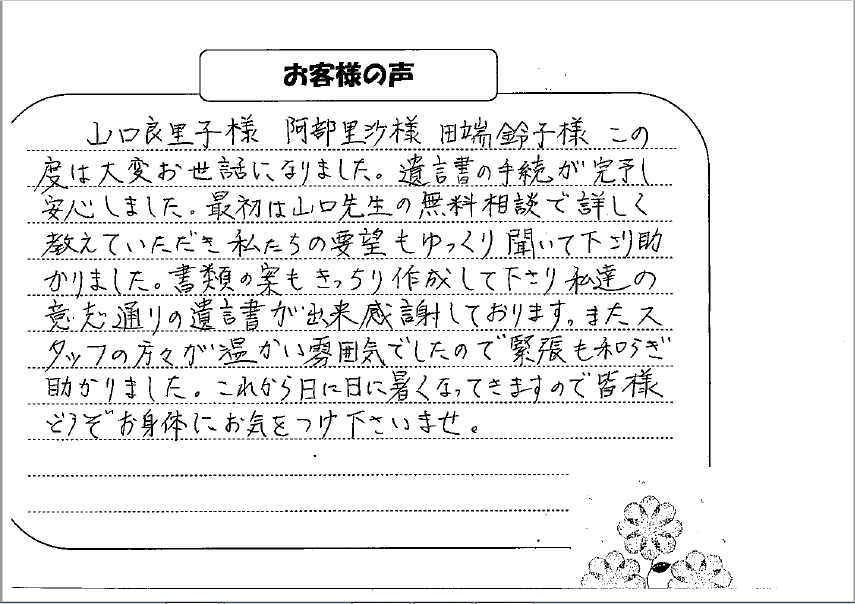 お客様の声
山口良里子様 阿部里沙様 田端鈴子様 この
度は大変お世話になりました。遺言書の手続が完予し
安心しました。最初は山口先生の無料相談で詳しく
教えていただき私たちの要望もゆっくり聞いて下こり助
かりました。書類の案もきっちり作成して下さり私達の
意志通りの遺言書が出来感謝しております。またス
タッフの方々が温かい雰囲気でしたので緊張も和らぎ
助かりました。これから日に日に暑くなってきますので皆様
どうぞお身体にお気をつけ下さいませ。